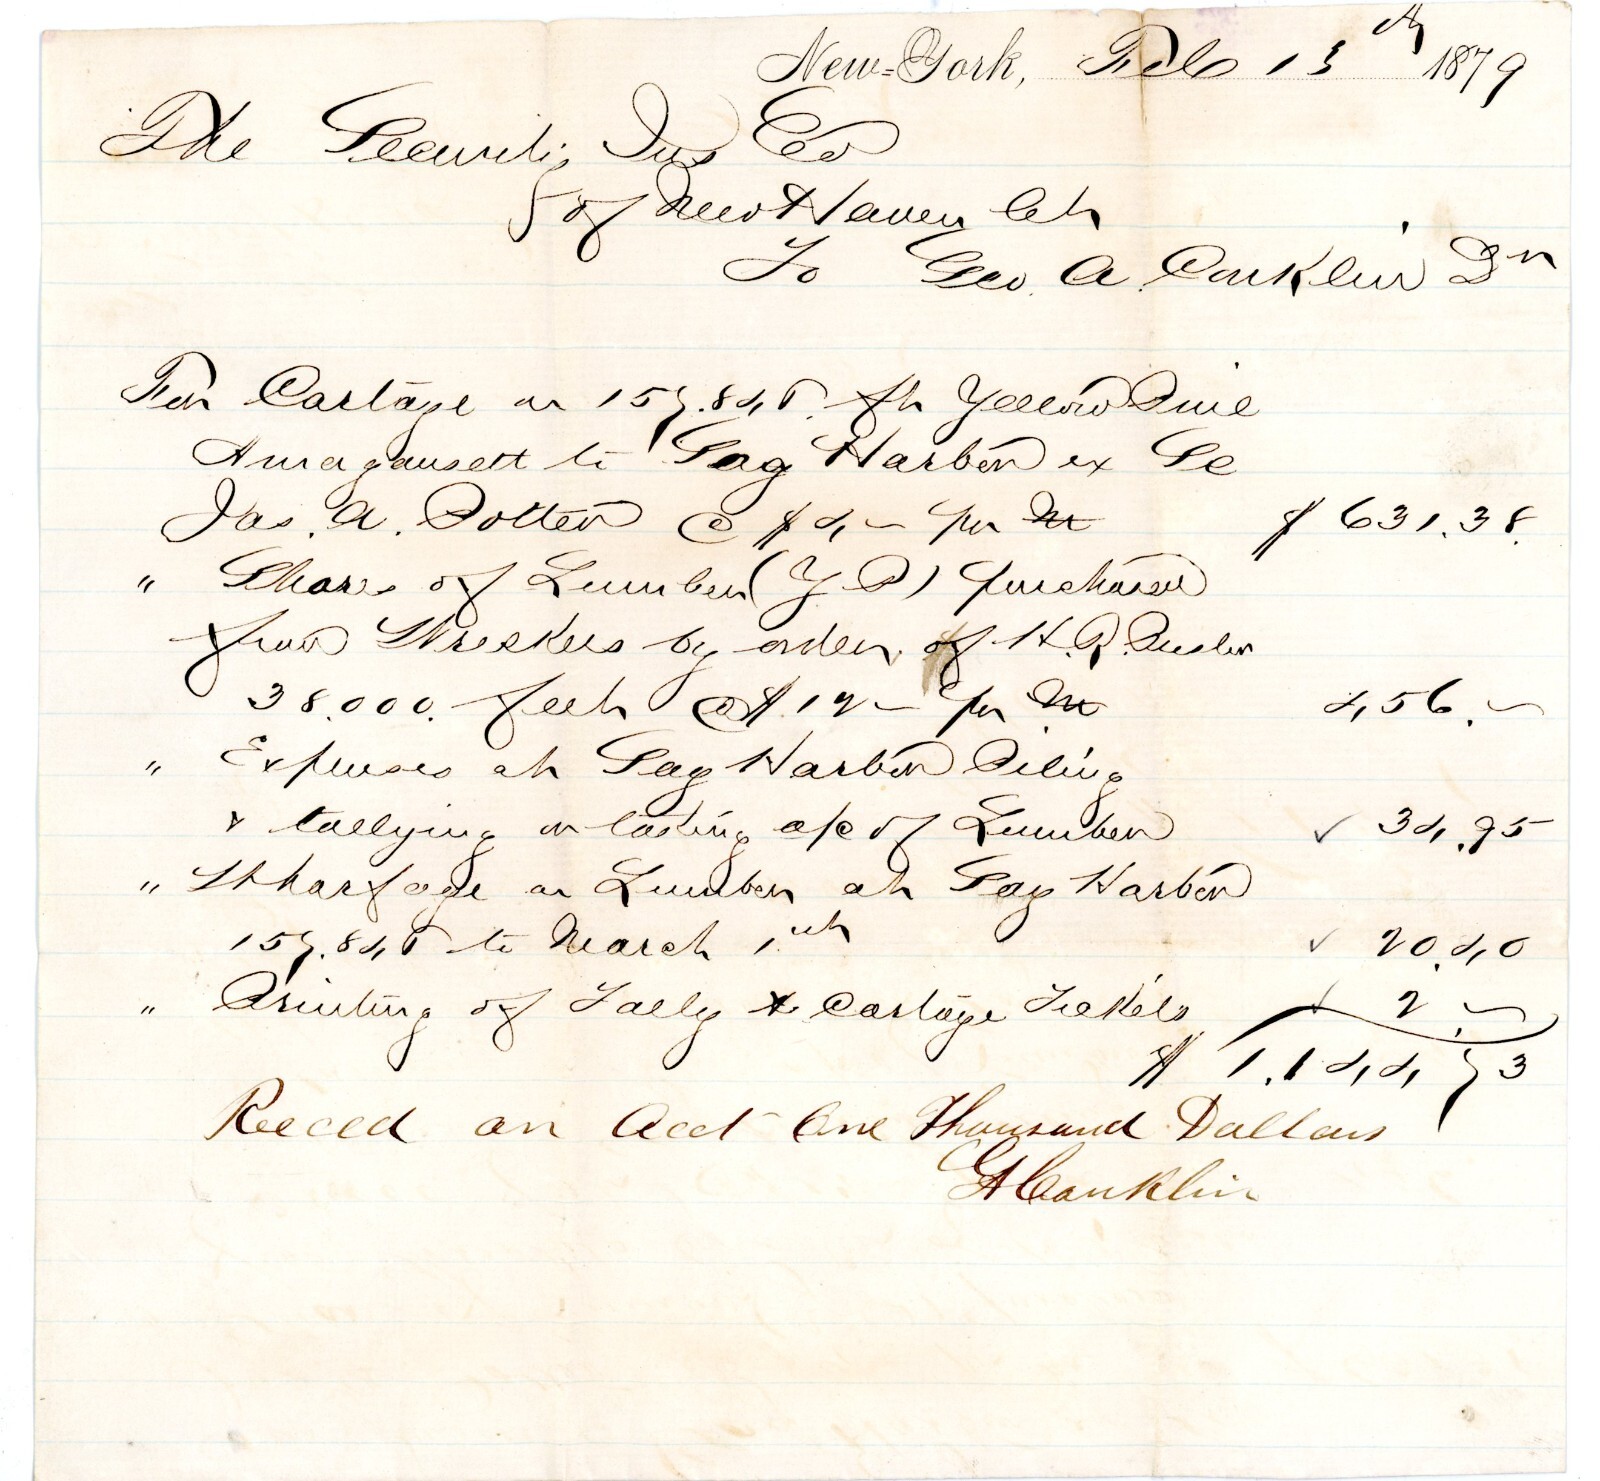 New-York, Feb 13th 1879
The Security Ins Co
of New Haven Ct
To Geo. A. Conklin Dr
For Cartage on 157.845. ft Yellow Pine
Amagansett to Sag Harbor ex Sc
Jas. A. Potter @ $4,— per M $ 631.38.
" Share of Lumber (Y P) purchased
from Wreckers by order of H. R.
38.000. feet @ $12— per M 456.—
" Expenses at Sag Harbor Piling
& tallying or taking a/c of Lumber ✓ 34.95
" Wharfage on Lumber at Sag Harbor
157.845 to March 1st ✓ 20.40
" Printing of Tally & Cartage Tickets ✓ 2.—
$ 1.144 73
Reced on Acct One Thousand Dollars
GA Conklin